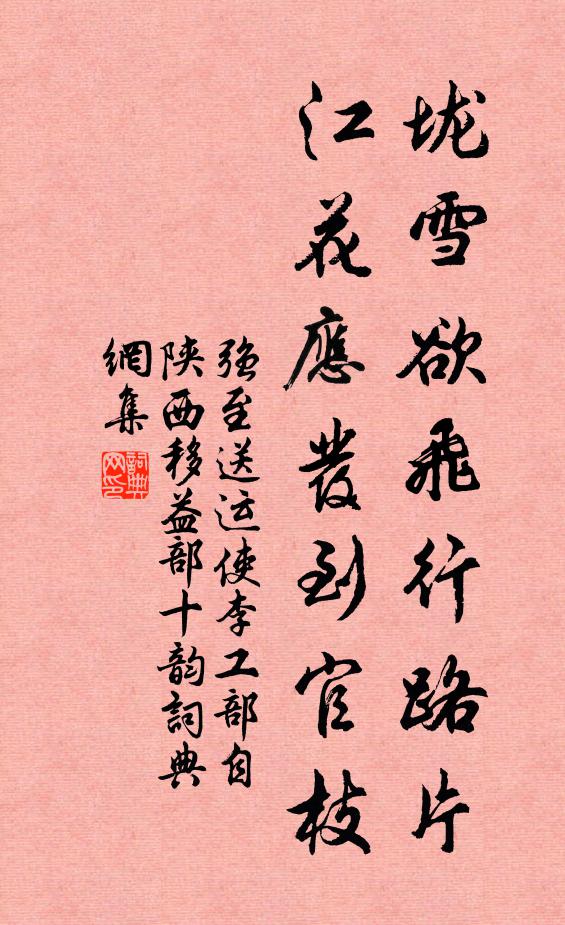 垅雪欲飛行路片
江花應發到官枝
强至送运使李工部自
陝西移益部十韵詞典
網集
詞典网印